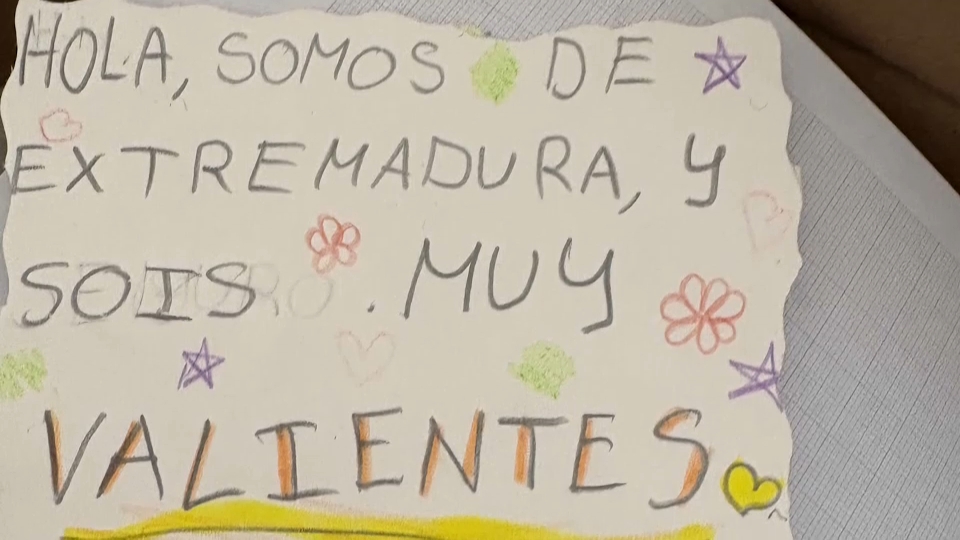 HOLA, SOMOS DE
EXTREMADURA, Y
SOIS . MUY
VALIENTES